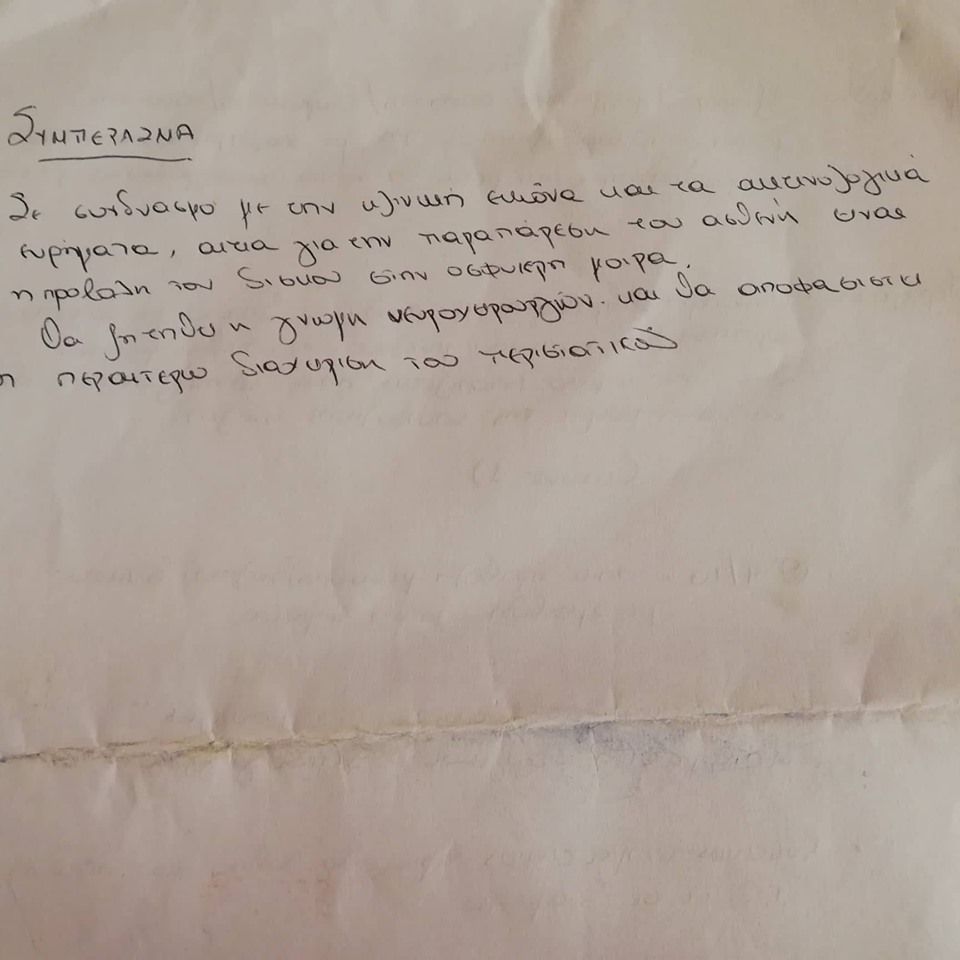 ΣΥΜΠΕΡΑΣΜΑ
Σε συνδυασμο με την κλινική εικόνα και τα ακτινολογικά
ευρήματα, αιτια για την παραπάρεση του ασθενή ειναι
η προβολη του δισκου στην οσφυικη μοιρα.
Θα ζητηθει η γνωμη νευροχειρουργών. και θα αποφασιστει
η περαιτερω διαχειριση του περιστατικού